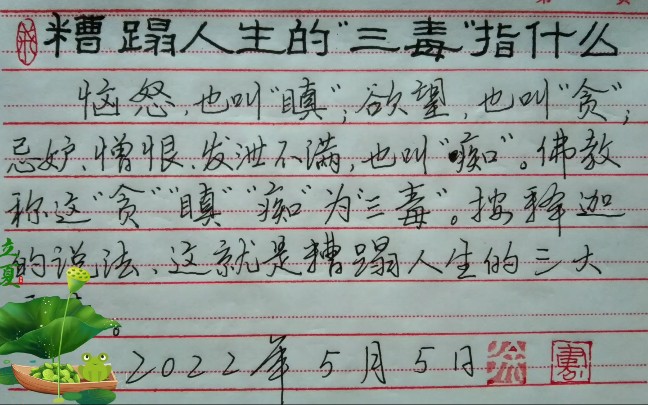 糟蹋人生的"三毒"指什么
恼怒，也叫"瞋"；欲望，也叫"贪"；
忌妒、憎恨、发泄不满，也叫"痴"。佛教
称这"贪""瞋""痴"为"三毒"。按释迦
的说法、这就是糟蹋人生的三大
。
2022年5月5日
立夏